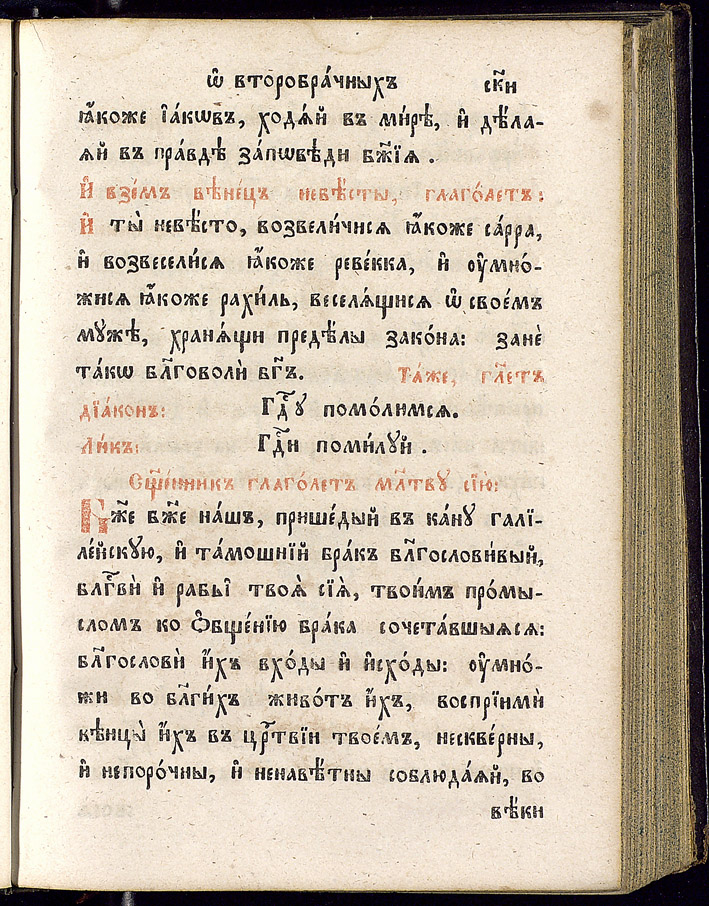 Ѡ҆ второбра́чныхъ ск҃и
ꙗ҆́коже і҆а́кѡвъ, ходѧ́й въ ми́рѣ, и҆ дѣ́ла-
ѧй въ пра́вдѣ за́пѡвѣди бж҃їѧ .
И҆ взе́мъ вѣне́цъ невѣ́сты, глаго́летъ:
И҆ ты̀ невѣ́сто, возвели́чисѧ ꙗ҆́коже са́рра,
и҆ возвесели́сѧ ꙗ҆́коже реве́кка, и҆ ᲂу҆мно́-
жисѧ ꙗ҆́коже рахи́ль, веселѧ́щисѧ ѡ҆ свое́мъ
мꙋ́жѣ, хранѧ́щи предѣ́лы зако́на: занѐ
та́кѡ бл҃говолѝ бг҃ъ. Та́же, гл҃етъ
дїа́конъ: Гдⷭ҇ꙋ помо́лимсѧ.
Ли́къ: Гдⷭ҇и поми́лꙋй .
Сщ҃е́нникъ глаго́летъ мл҃твꙋ сїю̀:
Гдⷭ҇и бж҃е на́шъ, прише́дый въ ка́нꙋ галї-
ле́йскꙋю, и҆ та́мошнїй бра́къ бл҃гослови́вый,
бл҃гвѝ и҆ рабы̑ твоѧ̑ сїѧ̑, твои́мъ про́мы-
сломъ ко ѻ҆бще́нїю бра́ка сочета́вшыѧсѧ:
бл҃гословѝ и҆́хъ вхо́ды и҆ и҆схо́ды: ᲂу҆мно́-
жи во бл҃ги́хъ живо́тъ и҆́хъ, воспрїимѝ
вѣнцы̀ и҆́хъ въ црⷭ҇твїи твое́мъ, нескве́рны,
и҆ непоро́чны, и҆ ненавѣ́тны соблюда́ѧй, во
вѣ́ки